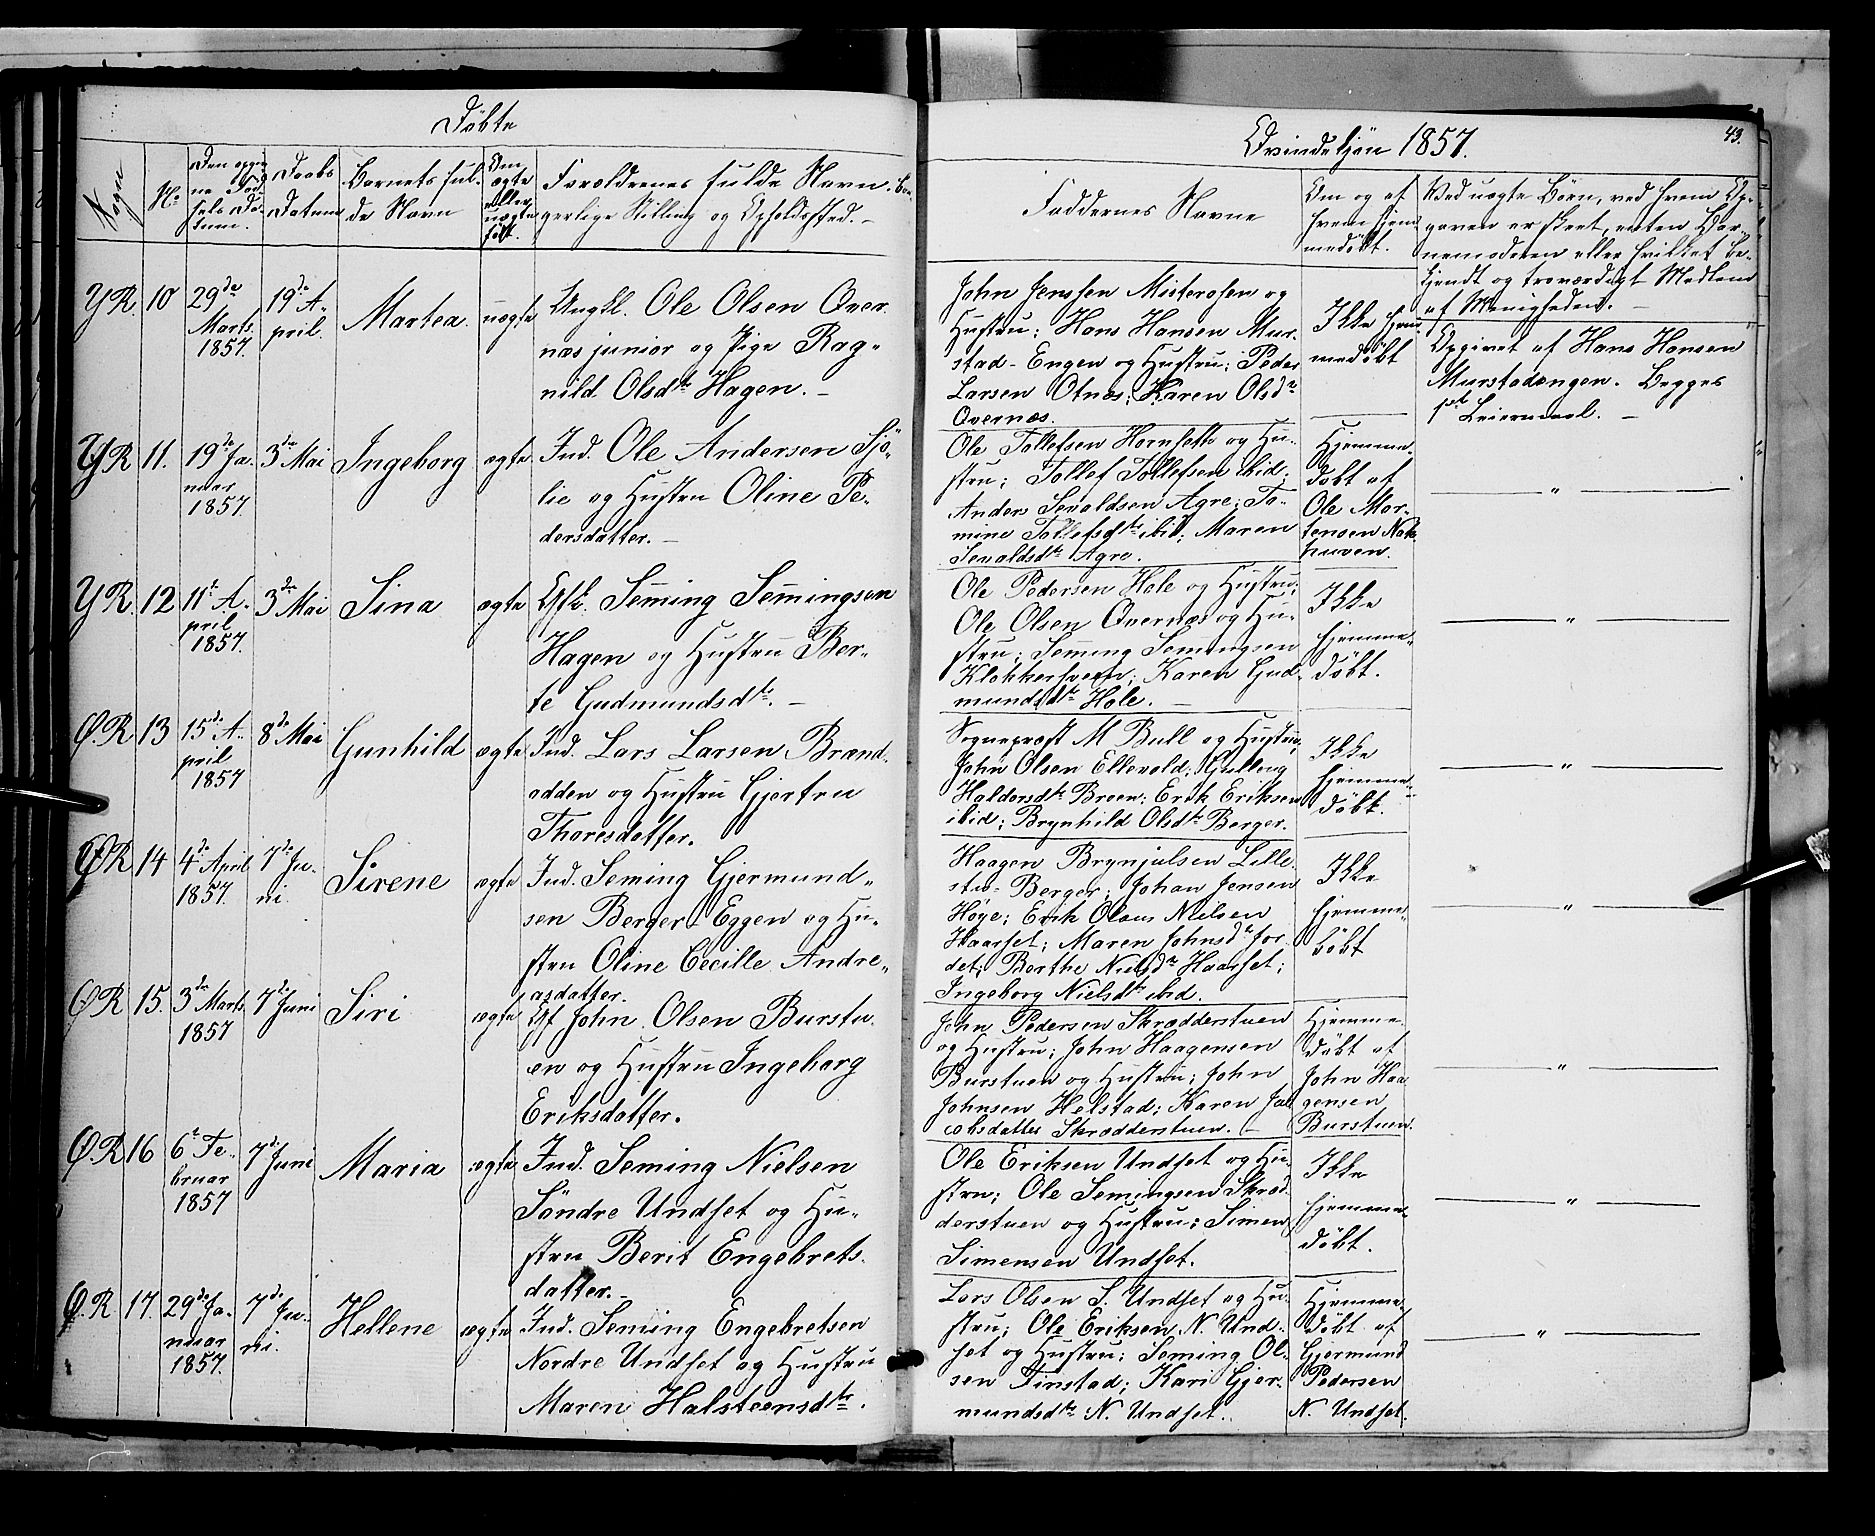 Döbte
Qvindekjön 1857.
43.
Sogn
No
Den opgiv-
ne Fød-
sels Da-
tum.
Daabs
Datum
Barnets ful-
de Navn
Om
ægte
eller
uægte
født.
Forældrenes fulde Navn, bor-
gerlige Stilling og Opholdssted. —
Faddernes Navne
Om og af
hvem hjem-
medöbt.
Ved uægte Börn, ved hvem Op-
gaven er skeet, enten Bar-
nemoderen eller hvilket be-
kjendt og troværdigt Medlem
af Menigheden. —
YR. 10
29de
Marts
1857.
19de A-
pril.
Martea.
uægte
Ungkl. Ole Olsen Over-
næs junior og Pige Rag-
nild Olsdtr Hagen. —
John Jenssen Misterosen og
Hustru; Hans Hansen Mur-
stad-Engen og Hustru; Peder
Larsen Otnæs; Karen Olsdr
Overnæs.
Ikke hjem-
medöbt
Opgivet af Hans Hansen
Murstadengen. Begges
1ste Leiermaal. —
YR 11.
19de Ja-
nuar
1857
3die Mai
Ingeborg
ægte
Ind. Ole Andersen Sjö-
lie og Hustru Oline Pe-
dersdatter. —
Ole Tollefsen Hornsette og Hu-
stru; Tollef Tollefsen ibid;
Anders Sevaldsen Agre; To-
mine Tollefsdtr ibid; Maren
Sevaldsdtr Agre.
Hjemme-
döbt af
Ole Mor-
tensen Nok-
huven.
— " —
YR. 12
11te A-
pril
1857.
3die Mai
Sina
ægte
Gft. Seming Semingsen
Hagen og Hustru Ber-
te Gudmundsdtr. —
Ole Pedersen Hole og Hustru;
Ole Olsen Overnæs og Hu-
stru; Seming Semingsen
Klokkersveen; Karen Gud-
mundsdtr Hole. —
Ikke
hjemme-
döbt.
— " —
Ø.R 13
15de A-
pril
1857
8de Mai
Gunhild
ægte
Ind. Lars Larsen Brænd-
odden og Hustru Gjertru
Thoresdatter.
Sognepræst M Bull og Hustru,
John Olsen Ellevold; Gulleug
Haldorsdtr Breen; Erik Eriksen
ibid; Brynhild Olsdtr Berger.
Ikke
hjemme-
döbt.
— " —
ØR 14
4de April
1857.
7de Ju-
ni.
Sirene
ægte
Ind. Seming Gjermund-
sen Berger-Eggen og Hu-
stru Oline Cecille Andre-
asdatter.
Haagen Brynjulsen Lille-
stu-Berger; Johan Jensen
Høye; Erik Olaus Nielsen
Haarset; Maren Johnsdr Jor-
det; Berthe Nielsdr Haarset;
Ingeborg Nielsdtr ibid.
Ikke
hjemme-
böbt
— " —
ØR 15.
3die Marts
1857
7de Juni
Siri
ægte
Gf John Olsen Burstu-
en og Hustru Ingeborg
Eriksdatter.
John Pedersen Skrædderstuen
og Hustru; John Haagensen
Burstuen og Hustru; John
Johnsen Helstad; Karen Jak-
obsdatter Skrædderstuen. —
Hjemme-
döbt af
John Haa-
gensen
Burstuen.
— " —
Ø.R 16
6te Fe-
bruar
1857
7de Juni
Maria
ægte
Ind. Seming Nielsen
Söndre Undset og Hu-
stru Berit Engebrets-
datter. —
Ole Eriksen Undset og Hu-
stru; Ole Semingsen Skræd-
derstuen og Hustru; Simen
Simensen Undset.
Ikke
hjemme-
döbt.
— " —
Ø.R. 17.
29de Ja-
nuar
1857.
7de Ju-
ni.
Hellene
ægte
Ind. Seming Engebretsen
Nordre Undset og Hustru
Maren Halsteensdtr.
Lars Olsen S. Undset og Hu-
stru; Ole Eriksen N. Und-
set og Hustru; Seming Ol-
sen Finstad; Kari Gjer-
mundsdtr N. Undset.
Hjemme-
döbt af
Gjermund
Pedersen
N. Undset.
— " —